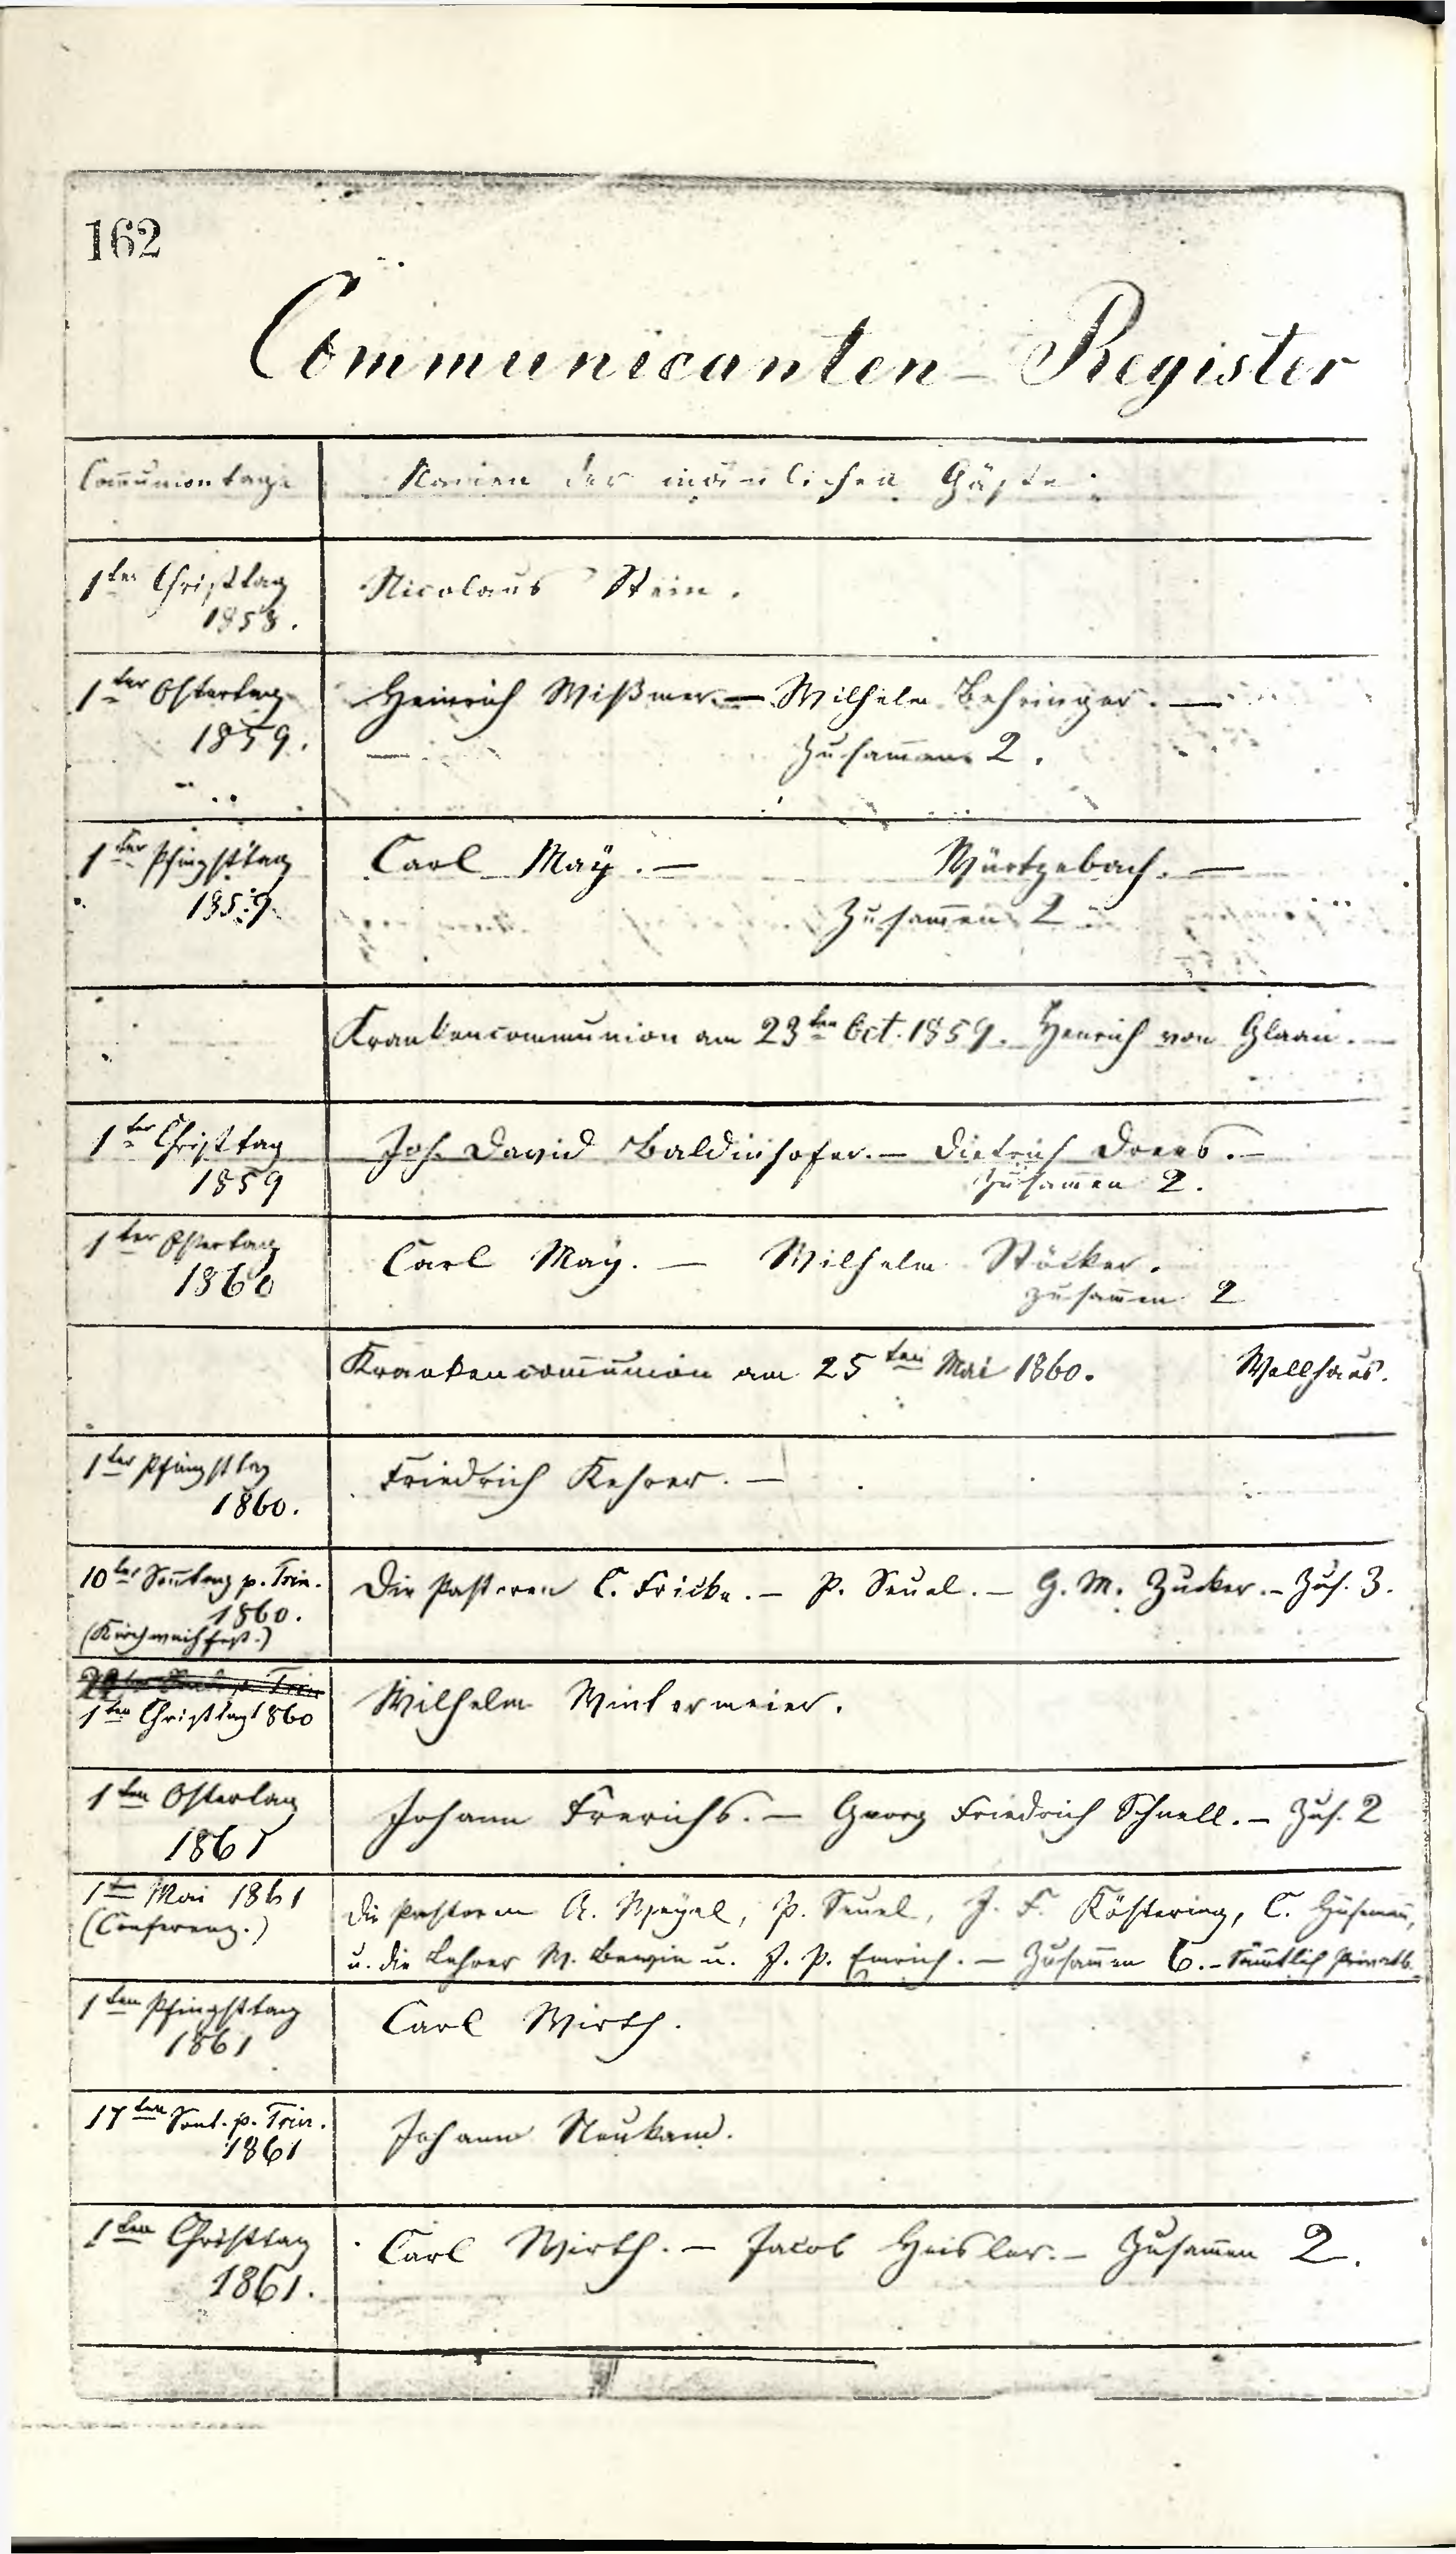 162
Communicanten-Register
Com̅uniontage
Namen der mäñlichen Gäste:
1ter Christtag
1858.
Nicolaus Stein.
1ter Ostertag
1859.
Heinrich Wißmer. — Wilhelm Behringer. —
Zusam̅en 2.
1ter Pfingsttag
1859.
Carl Maÿ. — Würtzebach. —
Zusam̅en 2
Krankencommunion am 23ten Oct. 1859. Henrich von Glaan. —
1ter Christtag
1859
Joh. David Baldinhofer. — Dietrich Drees. —
Zusam̅en 2.
1ter Ostertag
1860
Carl Maÿ. — Wilhelm Stöcker.
zusam̅en 2
Krankencom̅union am 25ten Mai 1860. Wellhaus.
1ter Pfingsttag
1860.
Friedrich Kehrer. —
10ter Son̅tag p. Trin.
1860.
(Kirchweihfest.)
Die Pastoren C. Fricke. — P. Seuel. — G. M. Zucker. — Zus. 3.
1ten Christtag 1860
Wilhelm Wintermeier.
1ten Ostertag
1861
Johann Frerichs. — Georg Friedrich Schnell. — Zus. 2
1te Mai 1861
(Conferenz.)
die Pastoren A. Weyel, P. Seuel, J. F. Köstering, C. Husman̅,
u. die Lehrer M. Bewie u. J. P. Emrich. — Zusam̅en 6. — Sämtlich Privatb.
1ten Pfingsttag
1861
Carl Wirth.
17ten Sont. p. Trin.
1861
Johann Neukam.
1ten Christtag
1861.
Carl Wirth. — Jacob Heisler. — Zusam̅en 2.